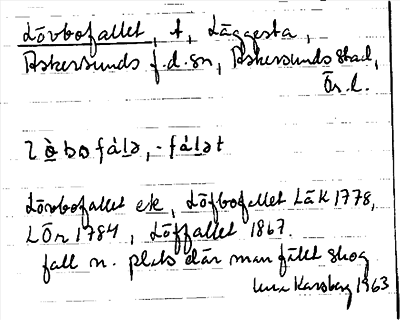 Lövbofallet, t, Läggesta,
Askersunds f.d. sn, Askersunds stad,
Ör. l.
lò̱bo fála̱, -fála̱t
Lövbofallet ek, Löfbofallet LäK 1778,
LÖr 1784, Löffallet 1867.
fall n. plats där man fällt skog
Karsberg 1963